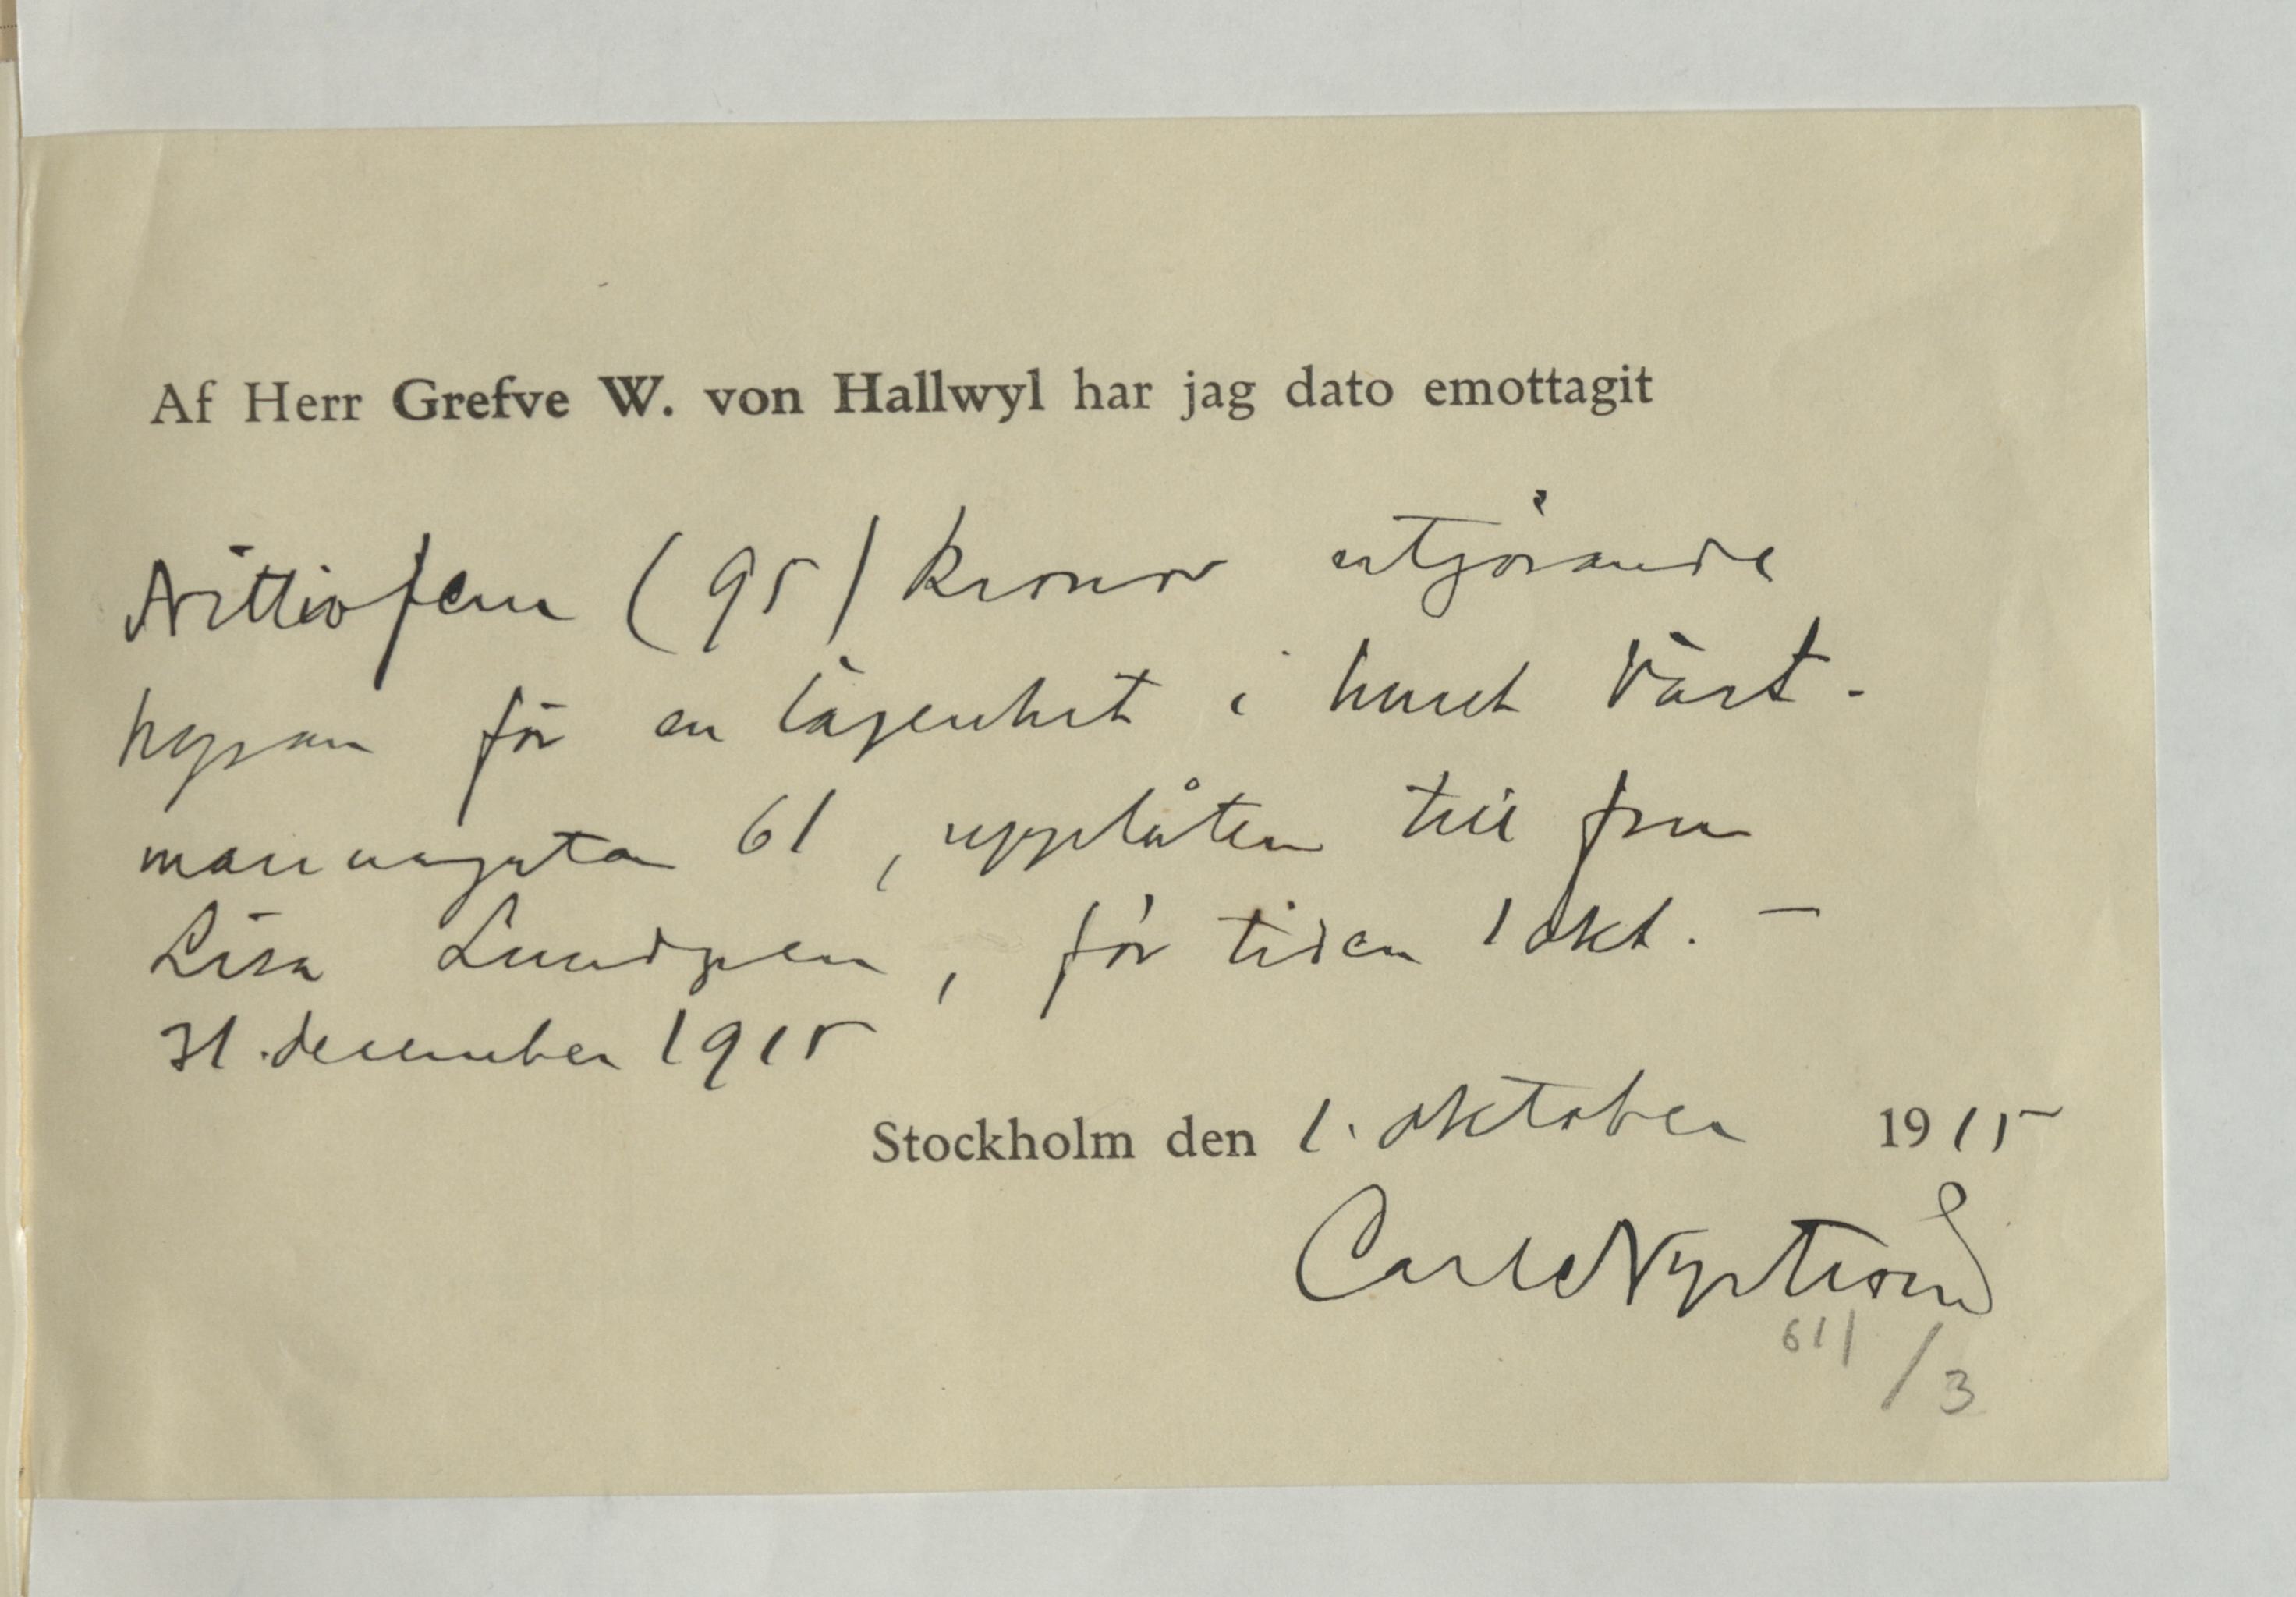 Af Herr Grefve W. von Hallwyl har jag dato emottagit
Nittiofem (95) kronor utgörande
hyran för en lägenhet i huset Väst-
mannagata 61, upplåten till fru
Lisa Lundgren, för tiden 1 okt. –
31. december 1915
Stockholm den 1. oktober 1915
Carl Nyström
61/
/3